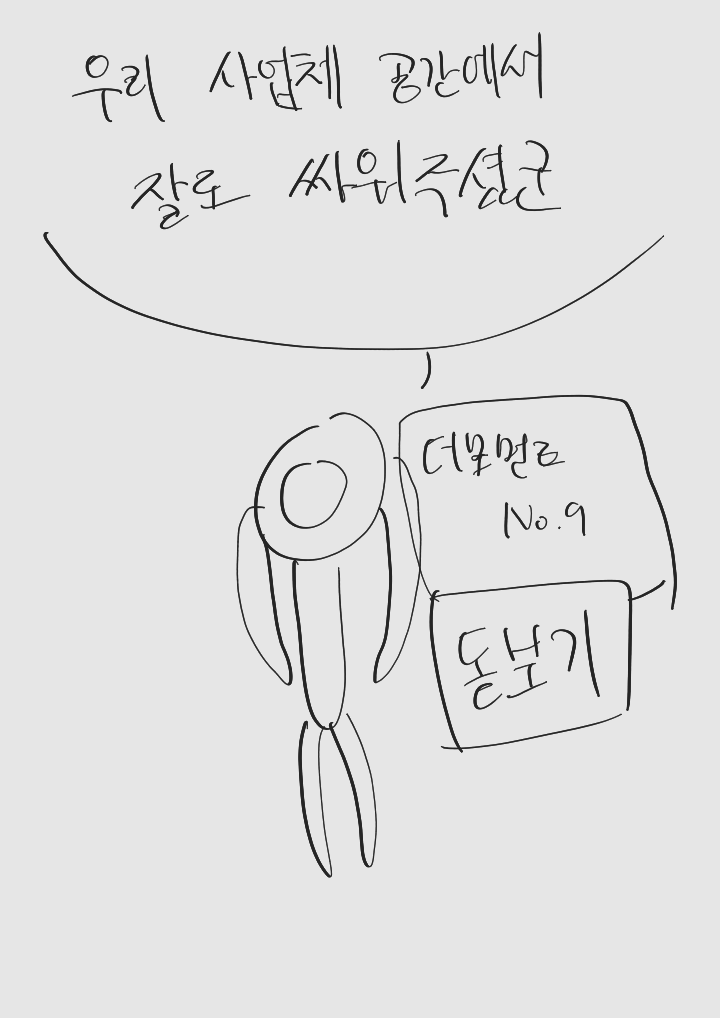 우리 사업체 공간에서
잘도 싸워주셨군
더 못 먼트
No. 9
돋보기